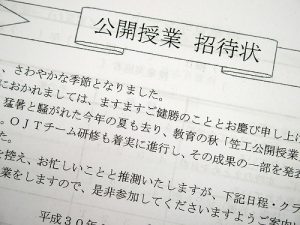 公開授業 招待状
、さわやかな季節となりました。
におかれましては、ますますご健勝のこととお慶び申し上げ
猛暑と騒がれた今年の夏も去り、教育の秋「笠工公開授業
。OJTチーム研修も着実に進行し、その成果の一部を発表
を控え、お忙しいことと推測いたしますが、下記日程・クラ
業をしますので、是非参加してくださいますようご案内
平成30年